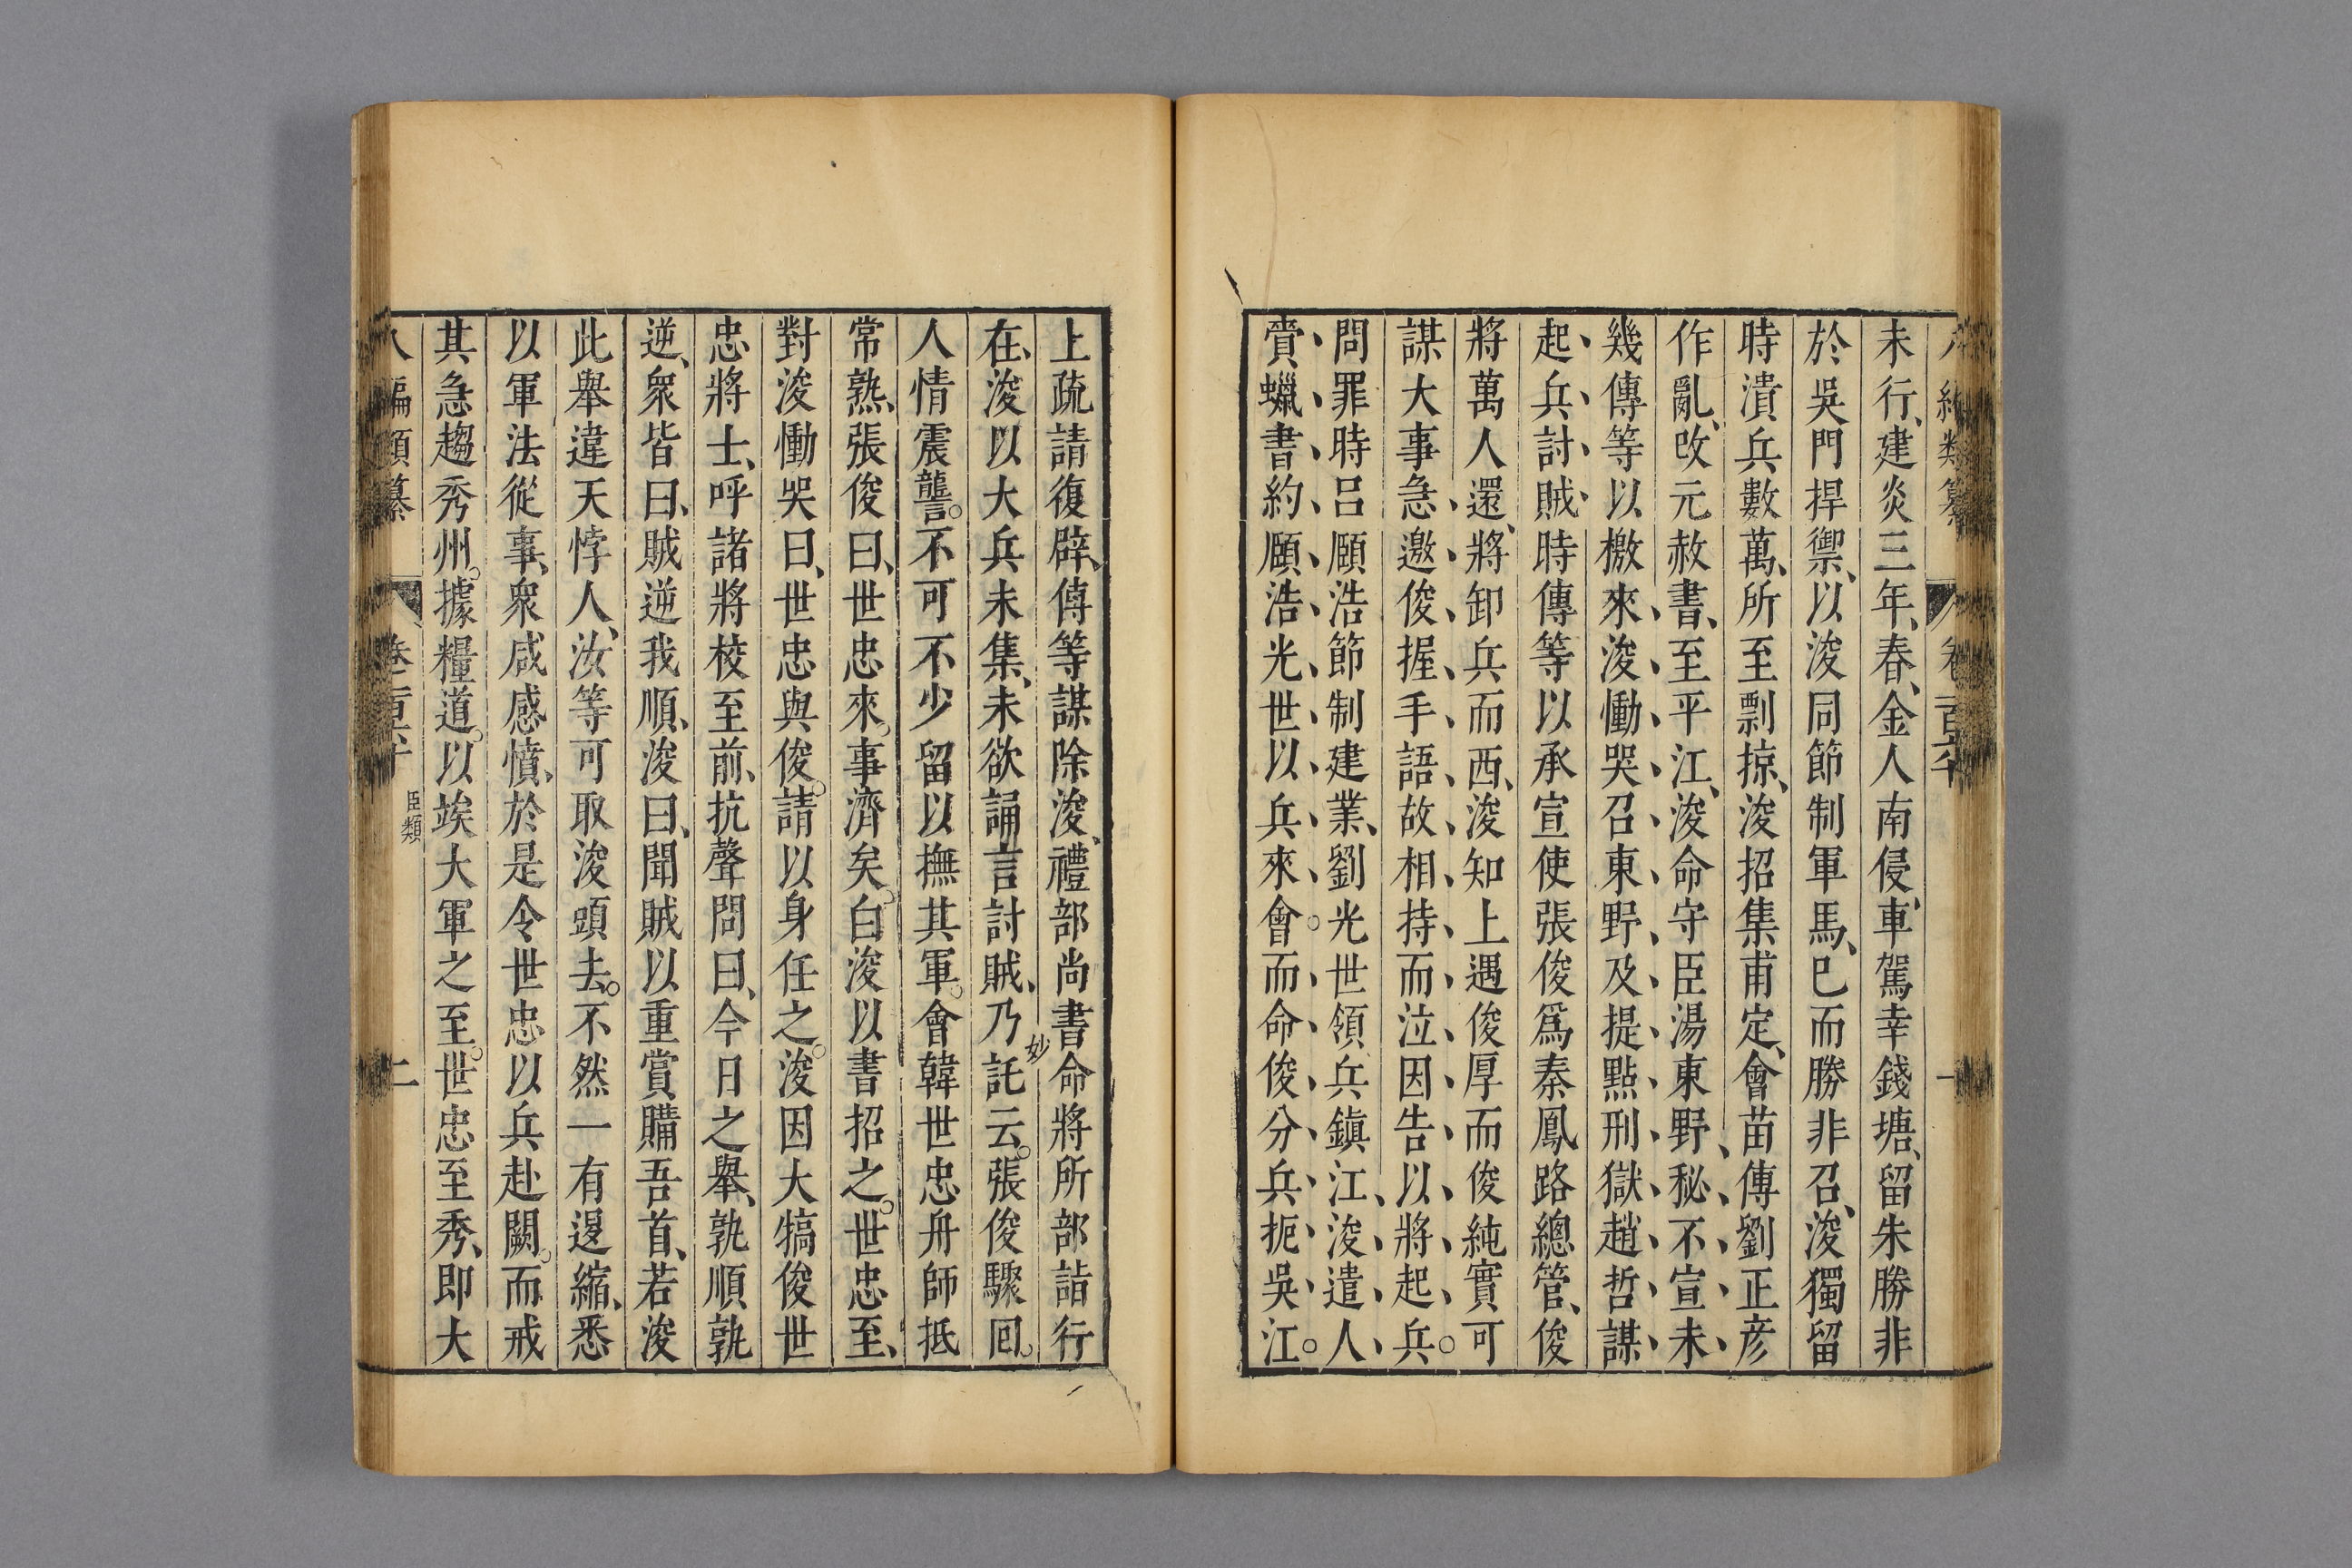 編類纂
卷一百六十
一
未行、建炎三年、春、金人南侵、車駕幸錢塘、留朱勝非
於吳門捍禦、以浚同節制軍馬、已而勝非召、浚獨留
時潰兵數萬、所至剽掠、浚招集甫定、會苗傅劉正彥
作亂、改元赦書、至平江、浚命守臣湯東野、秘不宣、未
幾傅等以檄來、浚慟哭、召東野、及提點刑獄趙哲謀
起兵討賊、時傅等以承宣使張俊爲秦鳳路總管、俊
將萬人還、將卸兵而西、浚知上遇俊厚而俊純實可
謀大事、急邀俊、握手語、故相持而泣、因告以將起兵。
問罪時呂頤浩節制建業、劉光世領兵鎮江、浚遣人、
賫蠟書、約頤浩光世、以兵來會。而命俊分兵扼吳江。
上疏請復辟、傅等謀除浚、禮部尚書命將所部詣行
在、浚以大兵未集、未欲誦言討賊、乃託云。張俊驟囘。
妙
人情震讋。不可不少留以撫其軍。會韓世忠舟師抵
常熟、張俊曰、世忠來。事濟矣。白浚以書招之。世忠至、
對浚慟哭曰、世忠與俊。請以身任之。浚因大犒俊世
忠將士、呼諸將校至前、抗聲問曰、今日之舉、孰順孰
逆、衆皆曰、賊逆我順、浚曰、聞賊以重賞購吾首、若浚
此舉違天悖人、汝等可取浚頭去。不然一有退縮、悉
以軍法從事、衆咸感憤、於是令世忠以兵赴闕。而戒
其急趨秀州。據糧道。以竢大軍之至。世忠至秀、即大
八編類纂
卷一百六十
臣類
二